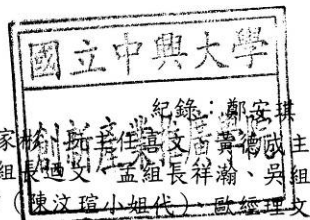 國立中興大學
創新產業推廣學院
紀錄：鄭安棋
家 阮主任喜文、黃德成主
組長迺文、孟組長祥瀚、吳組
(陳汶瑄小姐代)、歐經理文